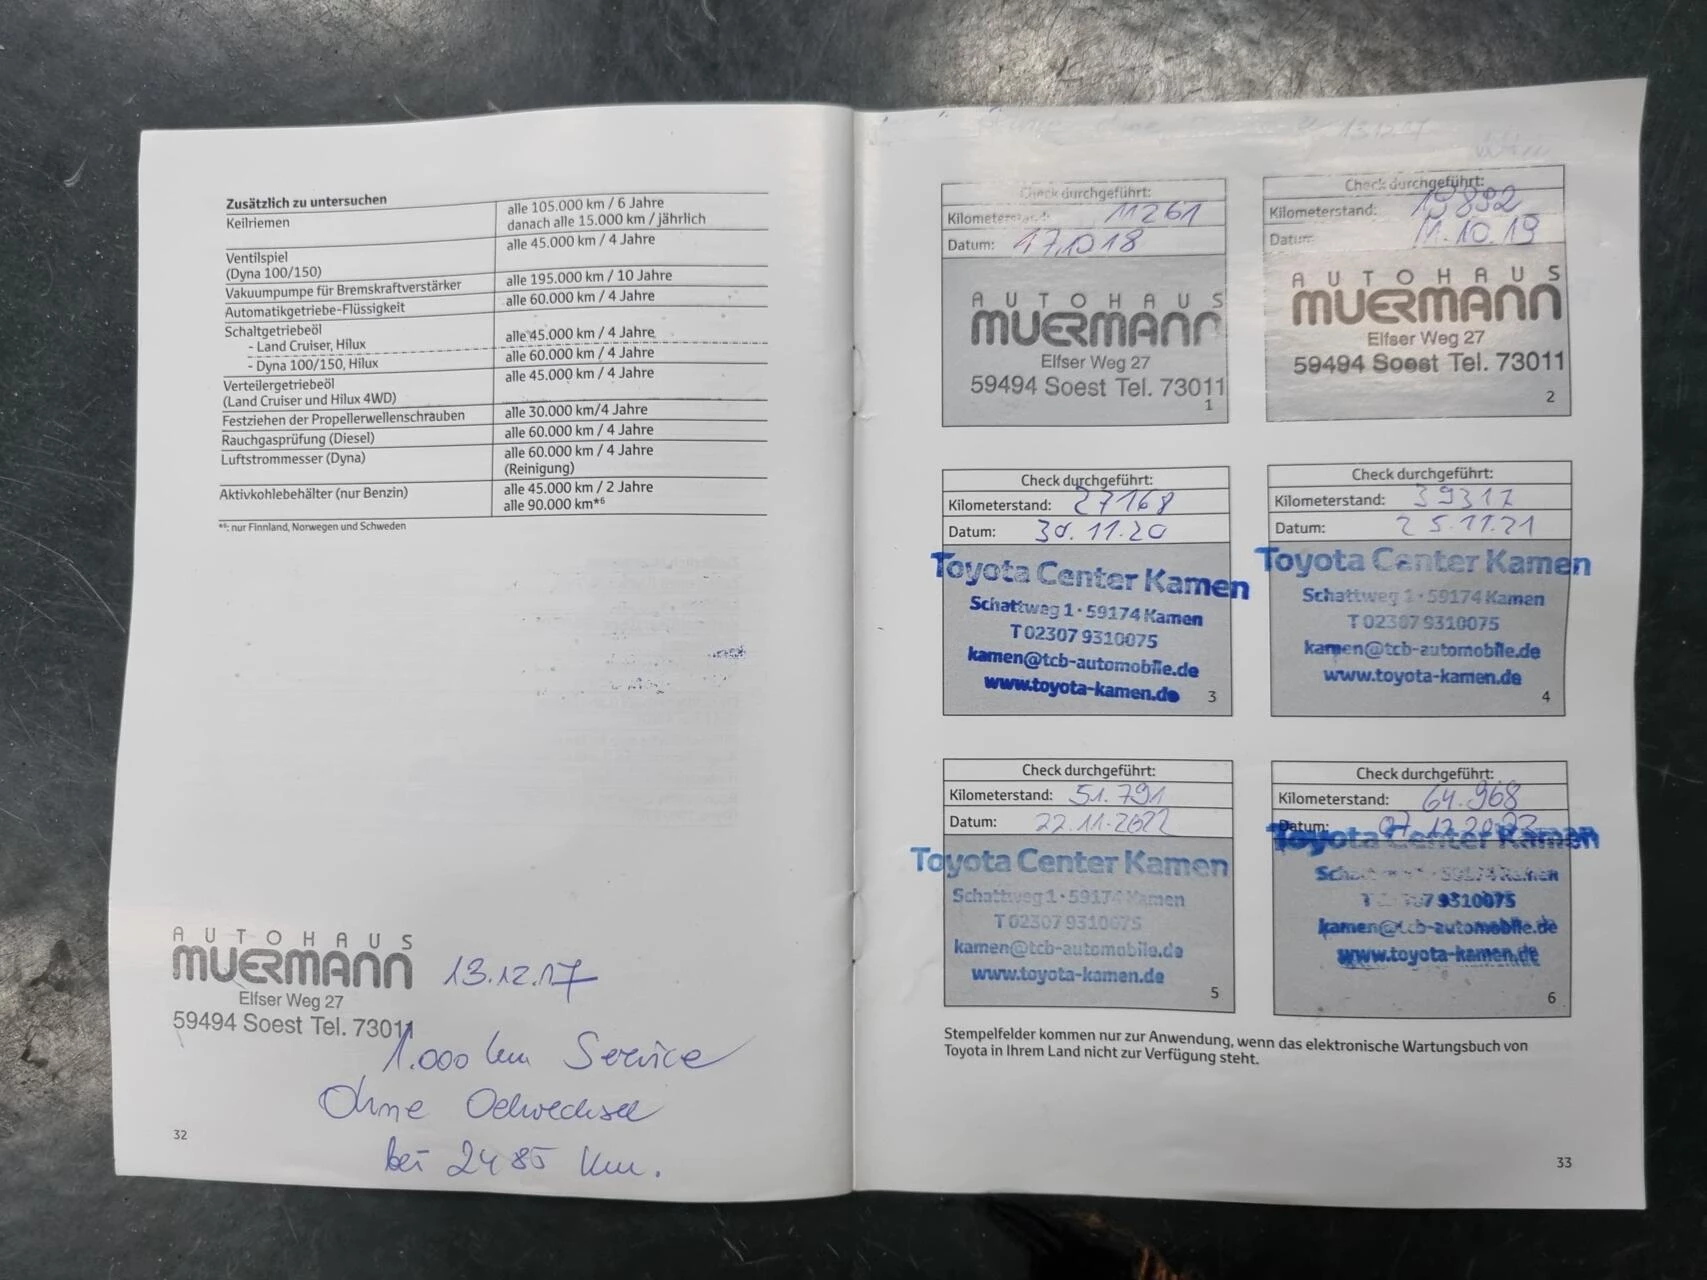 Zusätzlich zu untersuchen
Keilriemen
alle 105.000 km / 6 Jahre
danach alle 15.000 km / jährlich
Ventilspiel
(Dyna 100/150)
alle 45.000 km / 4 Jahre
Vakuumpumpe für Bremskraftverstärker
alle 195.000 km / 10 Jahre
Automatikgetriebe-Flüssigkeit
alle 60.000 km / 4 Jahre
Schaltgetriebeöl
- Land Cruiser, Hilux
alle 45.000 km / 4 Jahre
- Dyna 100/150, Hilux
alle 60.000 km / 4 Jahre
Verteilergetriebeöl
(Land Cruiser und Hilux 4WD)
alle 45.000 km / 4 Jahre
Festziehen der Propellerwellenschrauben
alle 30.000 km/4 Jahre
Rauchgasprüfung (Diesel)
alle 60.000 km / 4 Jahre
Luftstrommesser (Dyna)
alle 60.000 km / 4 Jahre
(Reinigung)
Aktivkohlebehälter (nur Benzin)
alle 45.000 km / 2 Jahre
alle 90.000 km*⁶
*⁶: nur Finnland, Norwegen und Schweden
AUTOHAUS
MUERMANN
Elfser Weg 27
59494 Soest Tel. 73011
13.12.17
1.000 km Service
Ohne Oelwechsel
bei 2485 Km.
32
Check durchgeführt:
Kilometerstand: 11261
Datum: 17.10.18
AUTOHAUS
MUERMANN
Elfser Weg 27
59494 Soest Tel. 73011
1
Check durchgeführt:
Kilometerstand: 19892
Datum: 11.10.19
AUTOHAUS
MUERMANN
Elfser Weg 27
59494 Soest Tel. 73011
2
Check durchgeführt:
Kilometerstand: 27168
Datum: 30.11.20
Toyota Center Kamen
Schattweg 1 · 59174 Kamen
T 02307 9310075
kamen@tcb-automobile.de
www.toyota-kamen.de
3
Check durchgeführt:
Kilometerstand: 39317
Datum: 25.11.21
Toyota Center Kamen
Schattweg 1 · 59174 Kamen
T 02307 9310075
kamen@tcb-automobile.de
www.toyota-kamen.de
4
Check durchgeführt:
Kilometerstand: 51.791
Datum: 22.11.2022
Toyota Center Kamen
Schattweg 1 · 59174 Kamen
T 02307 9310075
kamen@tcb-automobile.de
www.toyota-kamen.de
5
Check durchgeführt:
Kilometerstand: 64.968
Datum: 07.12.2023
Toyota Center Kamen
59174 Kamen
9310075
kamen@tcb-automobile.de
www.toyota-kamen.de
6
Stempelfelder kommen nur zur Anwendung, wenn das elektronische Wartungsbuch von
Toyota in Ihrem Land nicht zur Verfügung steht.
33